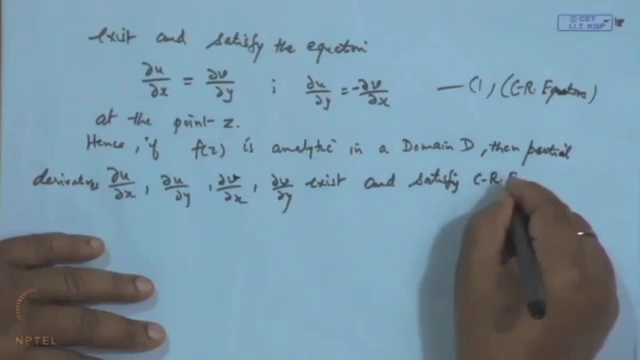 © CET
I.I.T. KGP
exist and satisfy the equation
∂u/∂x = ∂v/∂y ; ∂u/∂y = -∂v/∂x — (1) (C-R. Equations)
at the point z.
Hence, if f(z) is analytic in a Domain D, then partial
derivatives ∂u/∂x, ∂u/∂y, ∂v/∂x, ∂v/∂y exist and satisfy C-R. E
NPTEL